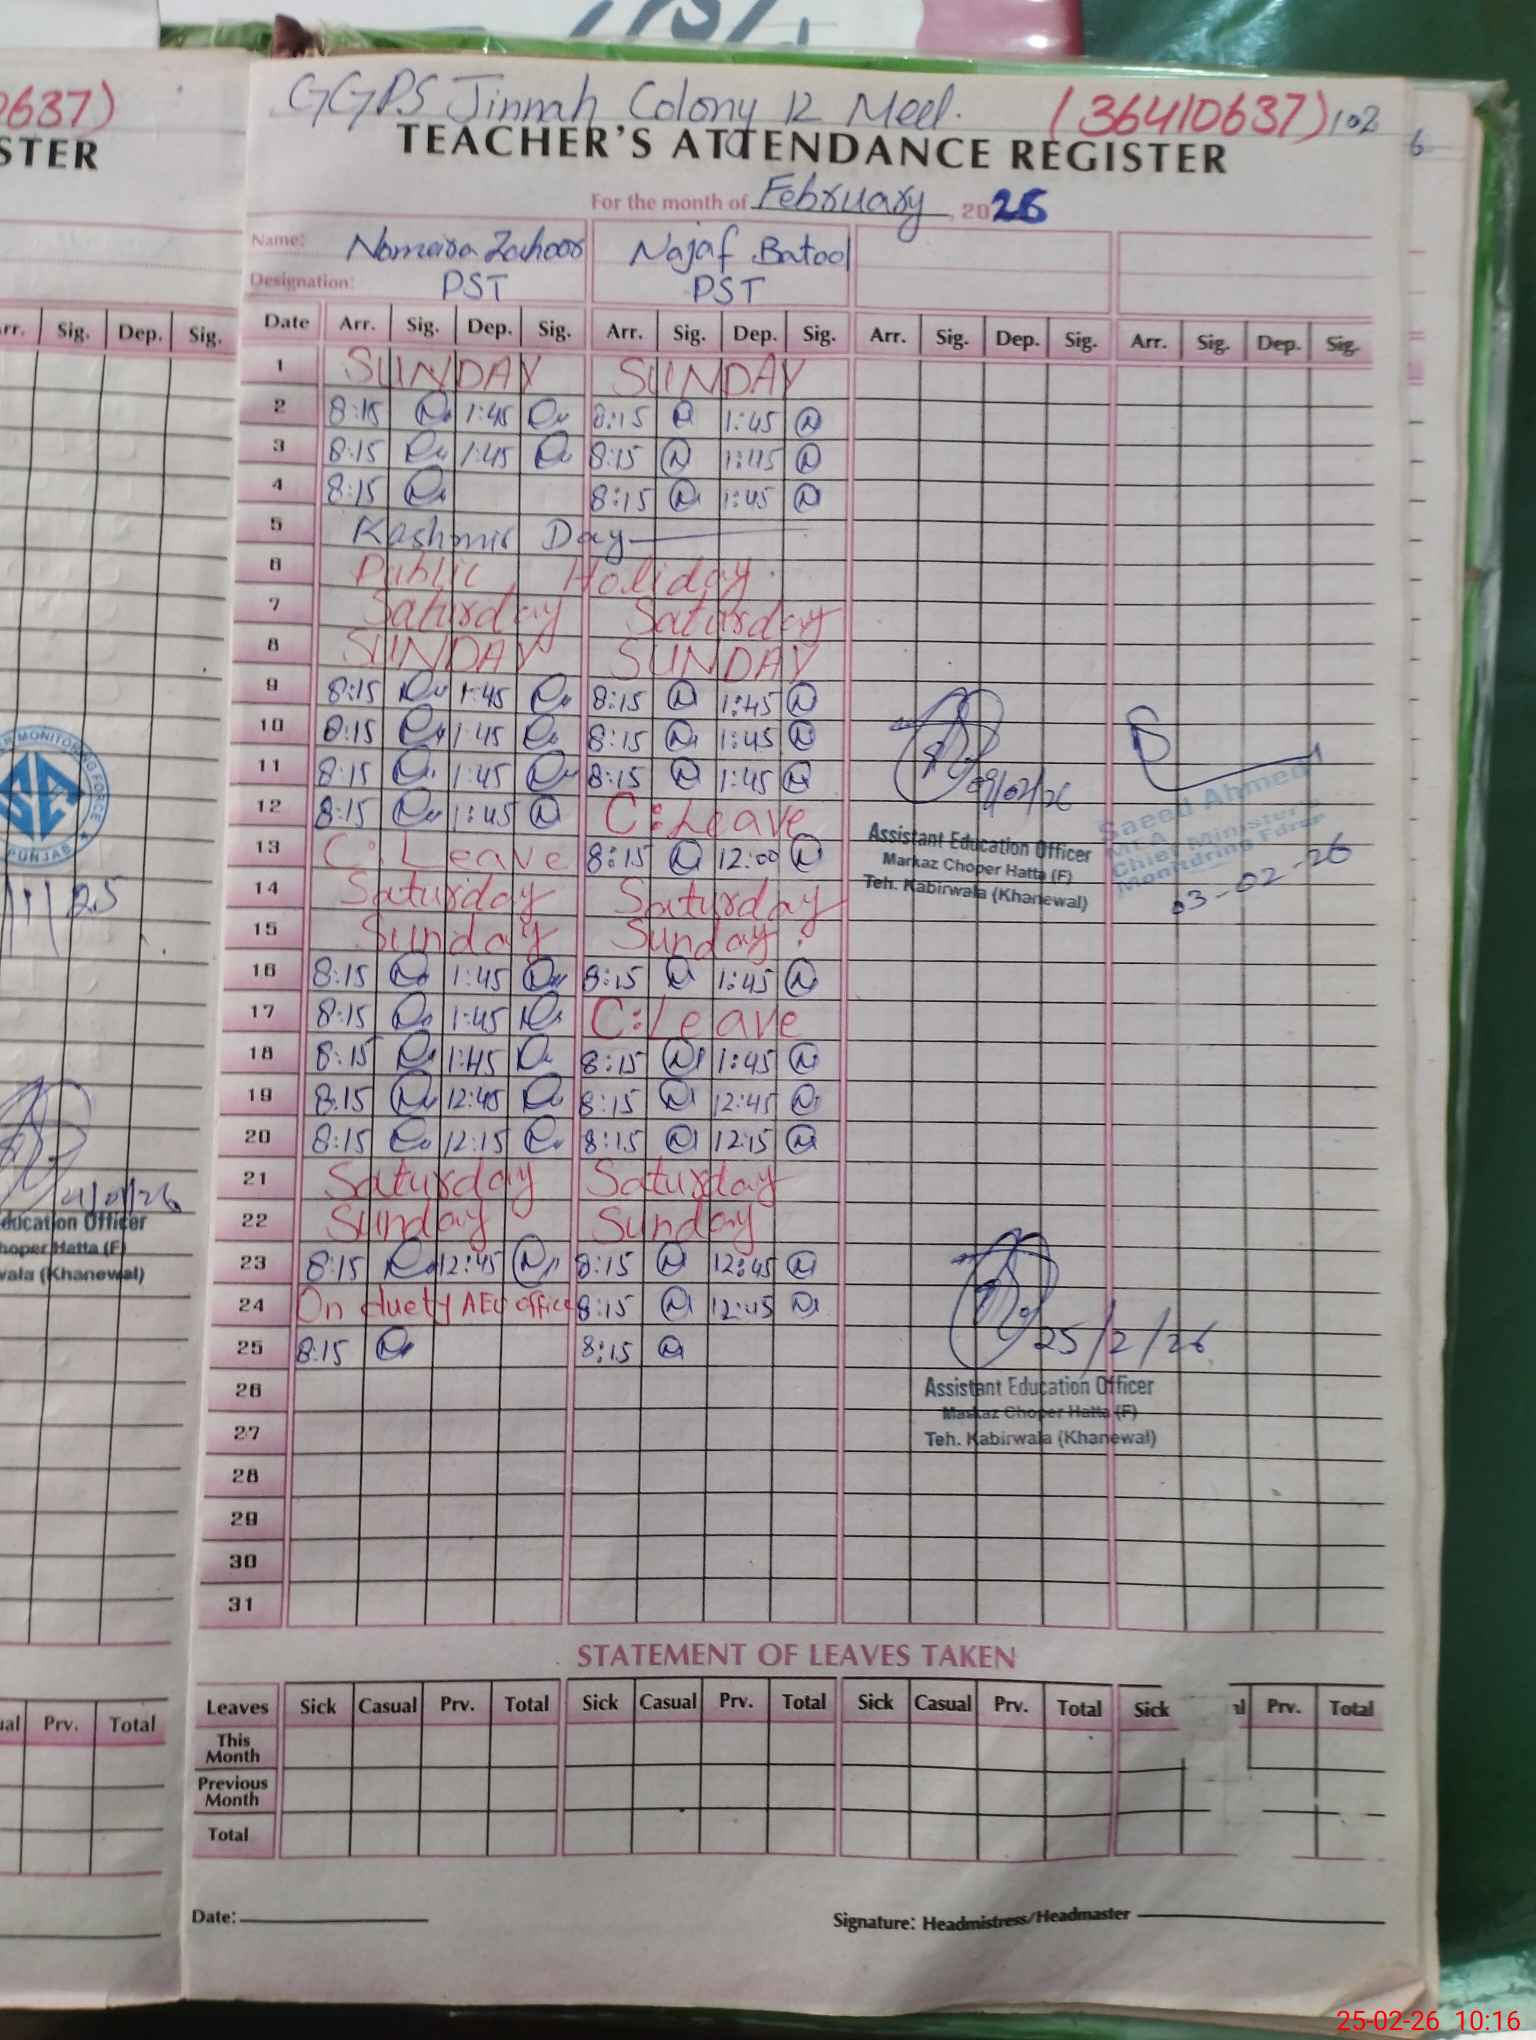 0637)
STER
rr. Sig. Dep. Sig.
PUNJAB
Education Officer
hoper Hatta (F)
wala (Khanewal)
ual Prv. Total
GGPS Jinnah Colony 12 Meel. (36410637) 102
6
TEACHER'S ATTENDANCE REGISTER
For the month of February, 2026
Name: Zahoor Najaf Batool
Designation: PST PST
Date Arr. Sig. Dep. Sig. Arr. Sig. Dep. Sig. Arr. Sig. Dep. Sig. Arr. Sig. Dep. Sig.
1 SUNDAY SUNDAY
2 8:15 1:45 8:15 1:45
3 8:15 1:45 8:15 1:45
4 8:15 8:15 1:45
5 Kashmir Day
6 Public Holiday.
7 Saturday Saturday
8 SUNDAY SUNDAY
9 8:15 1:45 8:15 1:45
10 8:15 1:45 8:15 1:45
11 8:15 1:45 8:15 1:45
12 8:15 1:45 C:Leave
13 C:Leave 8:15 12:00
14 Saturday Saturday
15 Sunday Sunday
16 8:15 1:45 8:15 1:45
17 8:15 1:45 C:Leave
18 8:15 1:45 8:15 1:45
19 8.15 12:45 8:15 12:45
20 8:15 12:15 8:15 12:15
21 Saturday Saturday
22 Sunday Sunday
23 8:15 12:45 8:15 12:45
24 On duety AEO office 8:15 12:45
25 8:15 8:15
26
27
28
29
30
31
09/02/26
Assistant Education Officer
Markaz Choper Hatta (F)
Teh. Kabirwala (Khanewal)
Saeed Ahmed
Chief Minister's
03-02-26
25/2/26
Assistant Education Officer
Markaz Choper Hatta (F)
Teh. Kabirwala (Khanewal)
STATEMENT OF LEAVES TAKEN
Leaves Sick Casual Prv. Total Sick Casual Prv. Total Sick Casual Prv. Total Sick Prv. Total
This Month
Previous Month
Total
Date: Signature: Headmistress/Headmaster
25-02-26 10:16